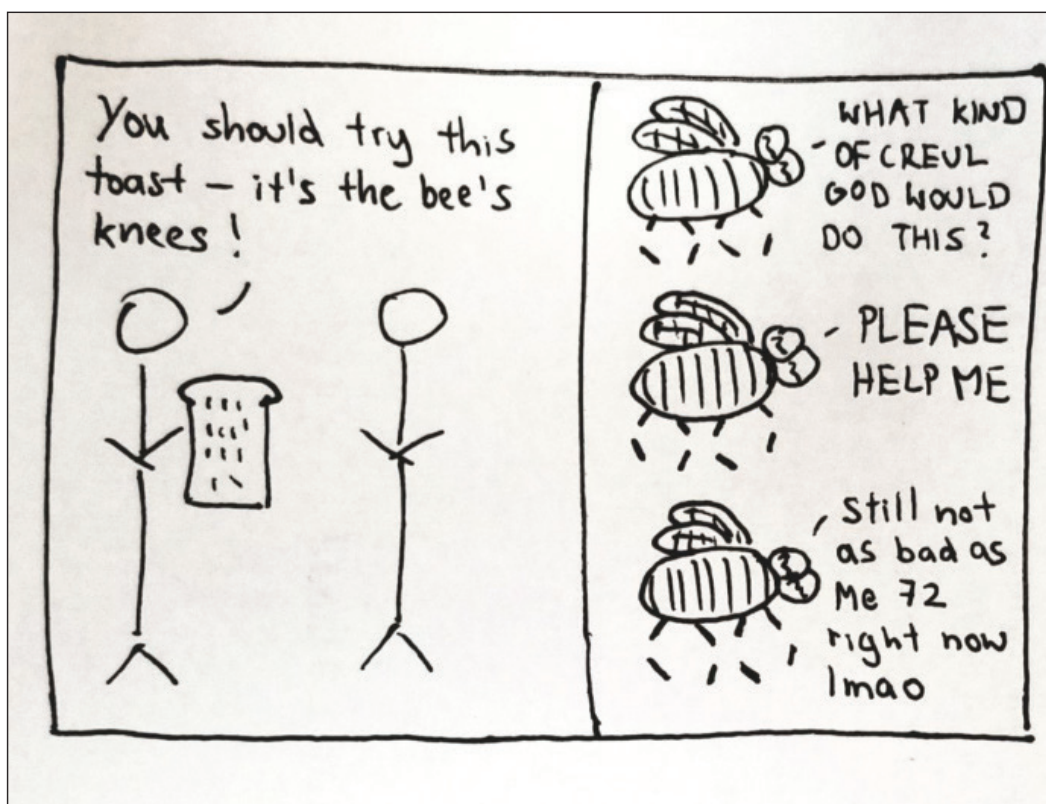 You should try this
toast – it's the bee's
knees!
WHAT KIND
OF CREUL
GOD WOULD
DO THIS?
PLEASE
HELP ME
Still not
as bad as
Me 72
right now
lmao